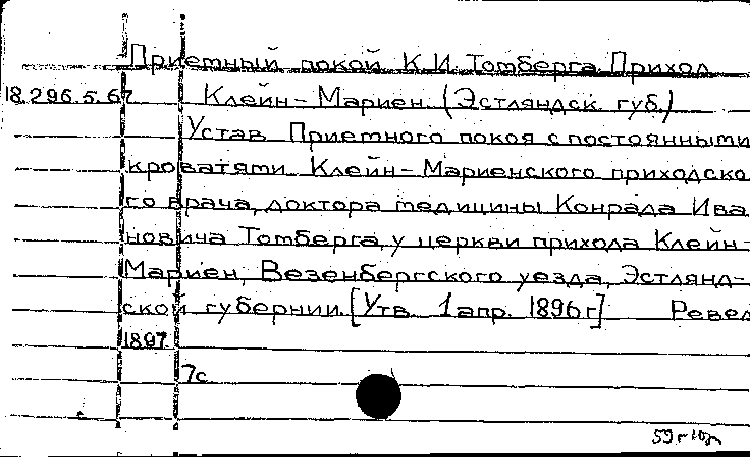 Приемный покой К.И. Томберга. Приход
18.296.5.67 Клейн-Мариен. (Эстляндск. губ.)
Устав Приемного покоя с постоянными
кроватями Клейн-Мариенского приходско
го врача, доктора медицины Конрада Ива
новича Томберга, у церкви прихода Клейн-
Мариен, Везенбергского уезда, Эстлянд-
ской губернии. [Утв. 1 апр. 1896 г] Ревел
1897.
7с.